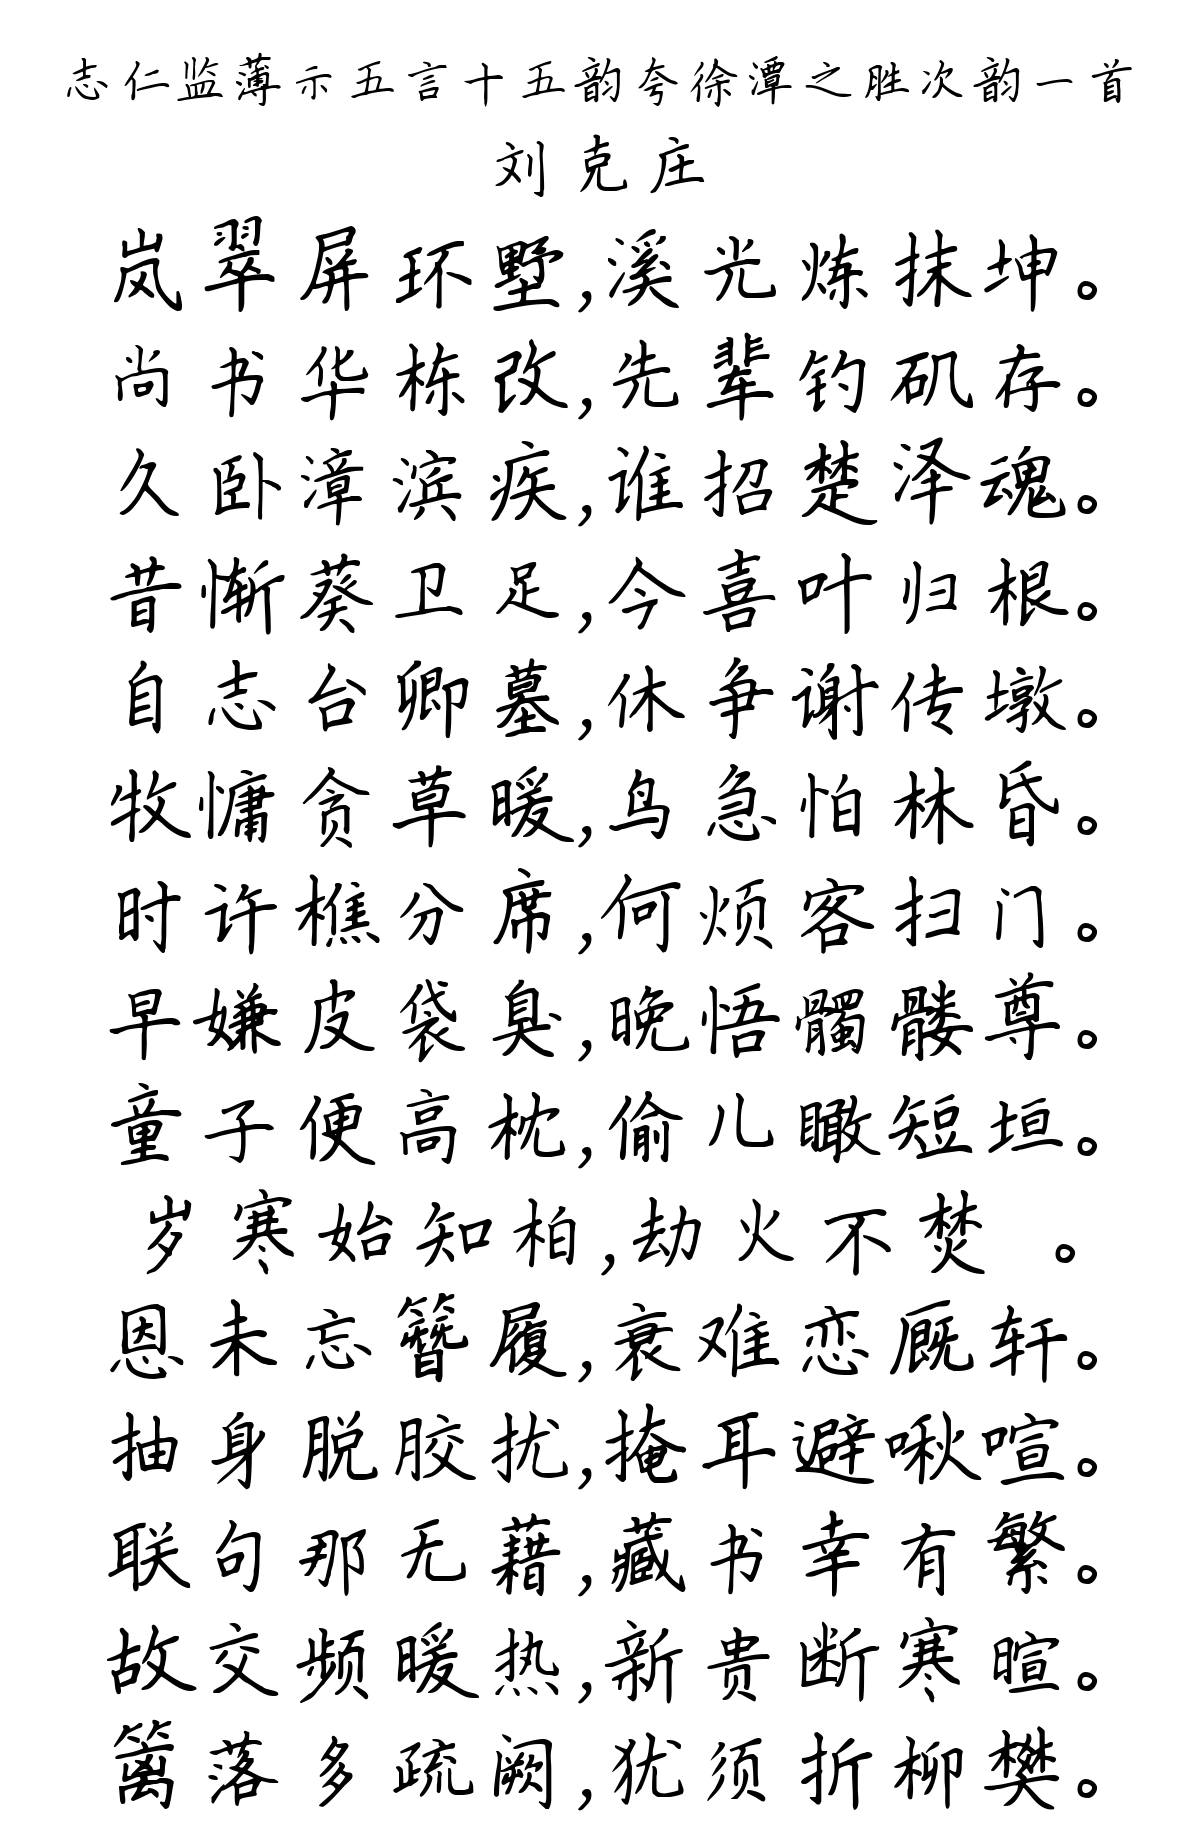 志仁监薄示五言十五韵夸徐潭之胜次韵一首
刘克庄
岚翠屏环墅,溪光炼抹坤。
尚书华栋改,先辈钓矶存。
久卧漳滨疾,谁招楚泽魂。
昔惭葵卫足,今喜叶归根。
自志台卿墓,休争谢传墩。
牧慵贪草暖,鸟急怕林昏。
时许樵分席,何烦客扫门。
早嫌皮袋臭,晚悟髑髅尊。
童子便高枕,偷儿瞰短垣。
岁寒始知柏,劫火不焚 。
恩未忘簪履,衰难恋厩轩。
抽身脱胶扰,掩耳避啾喧。
联句那无藉,藏书幸有繁。
故交频暖热,新贵断寒暄。
篱落多疏阙,犹须折柳樊。